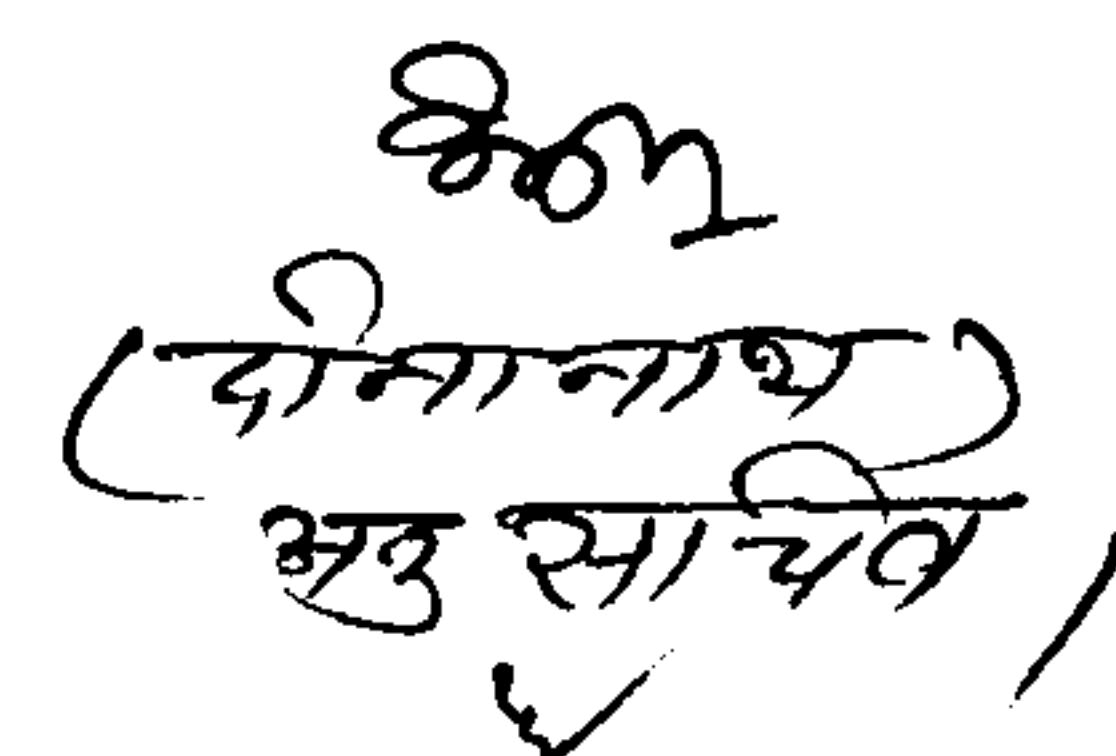 (दीनानाथ)
अवर सचिव